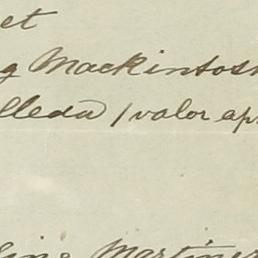 et
g Mackintosh
lleda / valor ap
Martinez